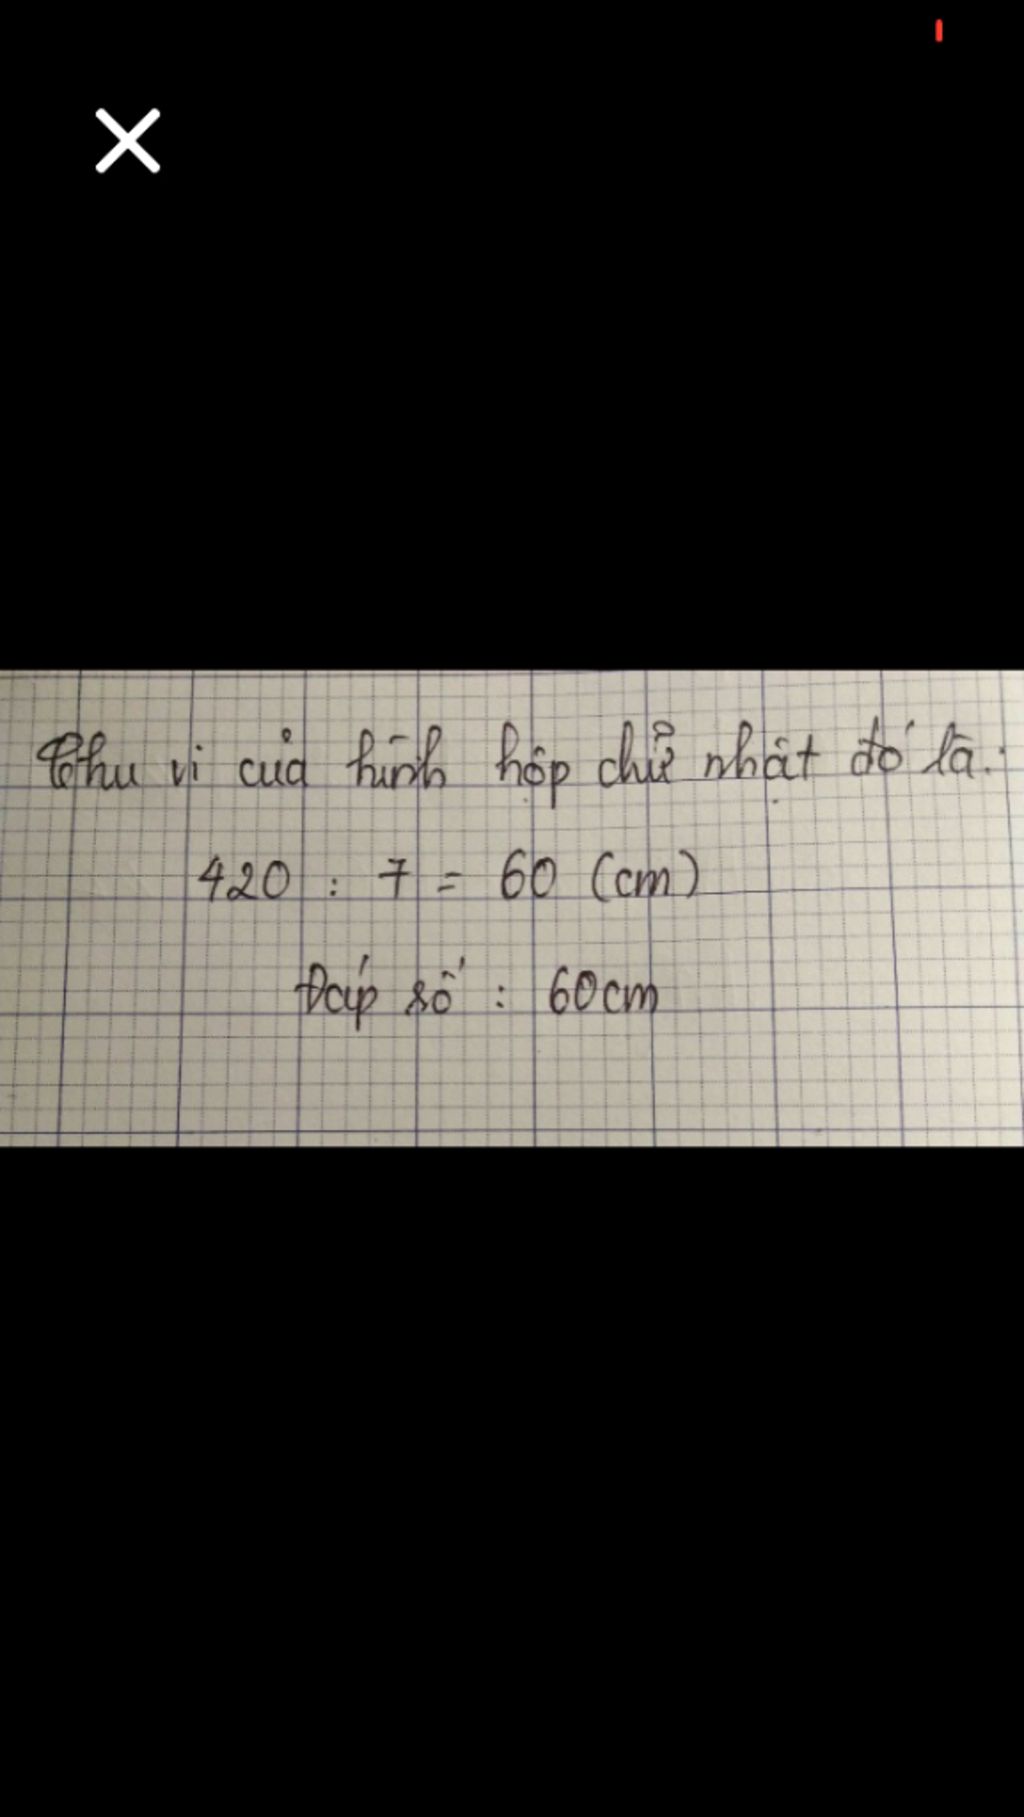 Chu vi của hình hộp chữ nhật đó là:
420 : 7 = 60 (cm)
Đáp số : 60cm